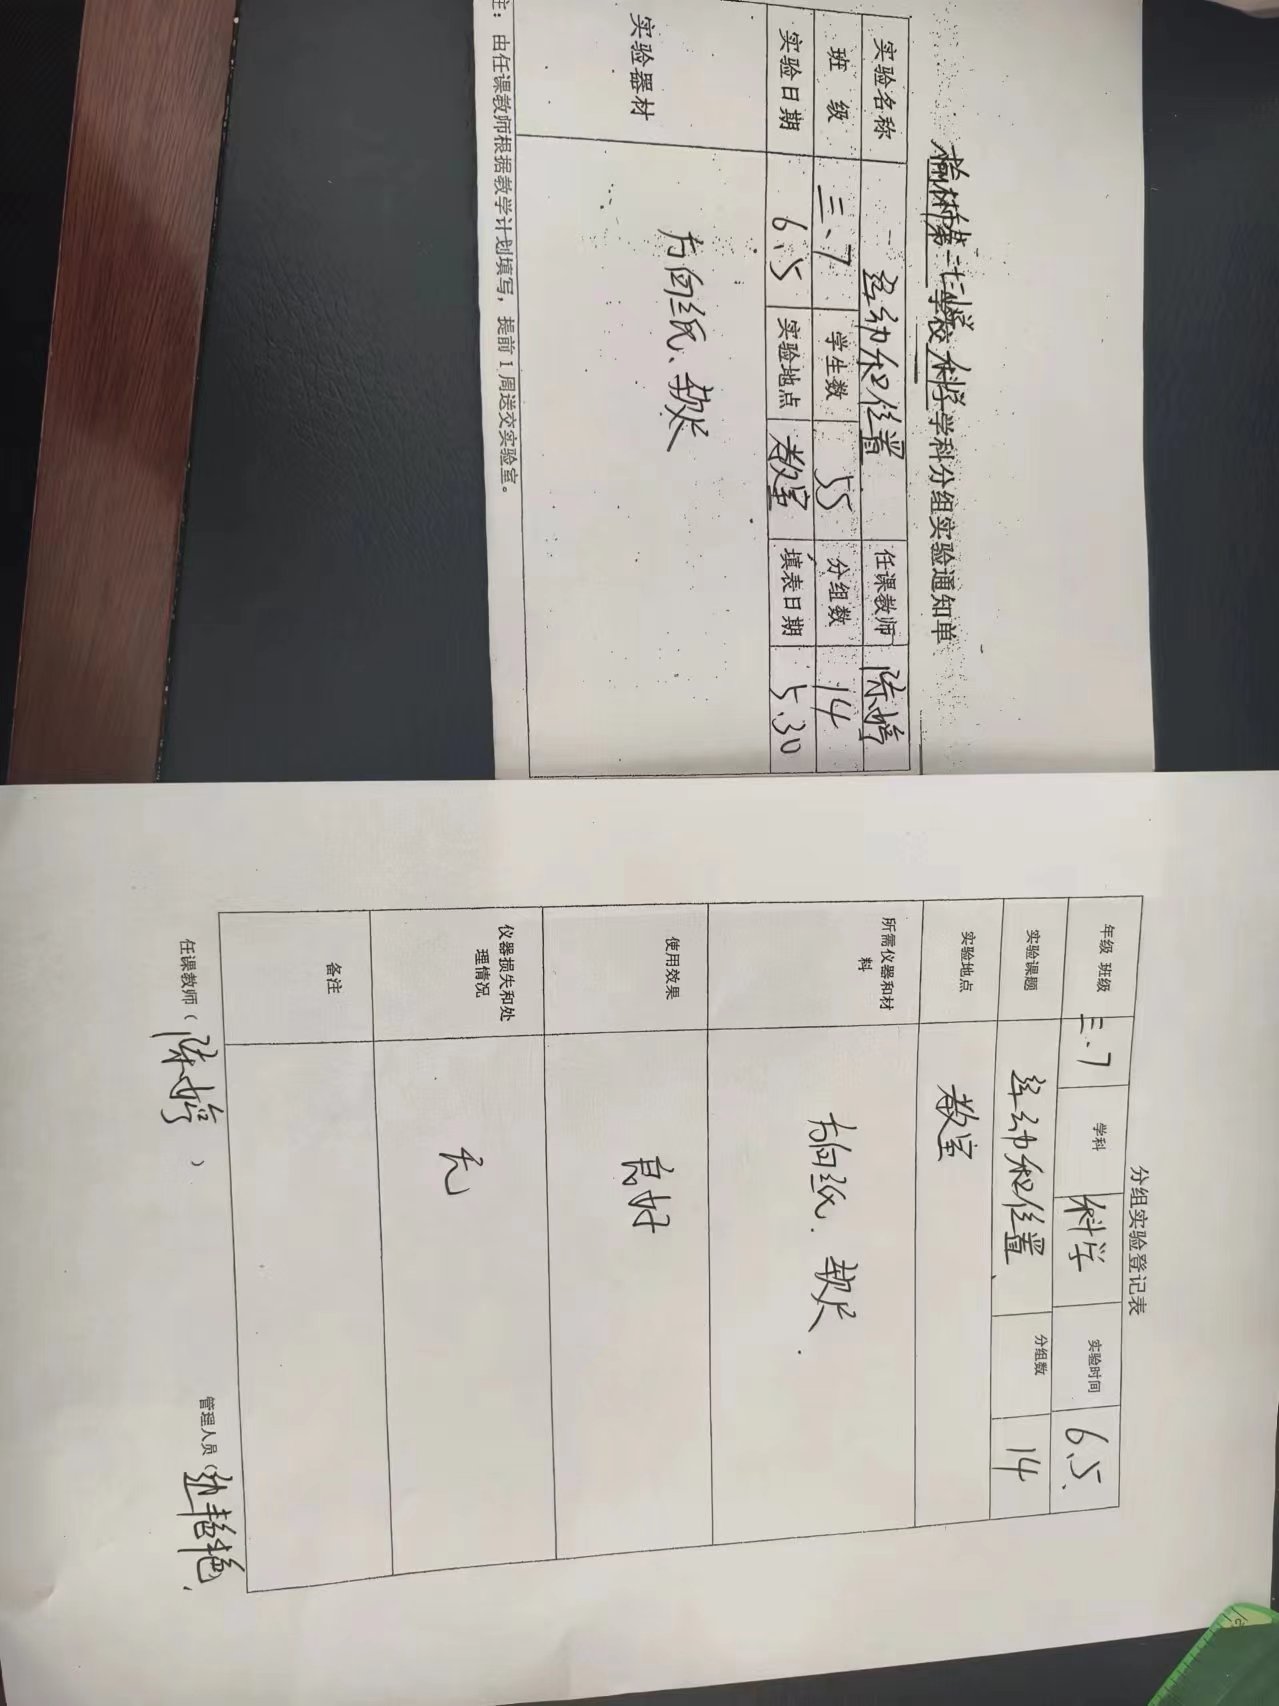 榆林市第二十小学学校科学学科分组实验通知单
实验名称 运动和位置 任课教师 陈婷
班 级 三.7 学生数 55 分组数 14
实验日期 6.5 实验地点 教室 填表日期 5.30
实验器材 方向纸、软尺
注：由任课教师根据教学计划填写，提前1周送交实验室。
分组实验登记表
年级 班级 三.7 学科 科学 实验时间 6.5.
实验课题 运动和位置 分组数 14
实验地点 教室
所需仪器和材
料 方向纸. 软尺.
使用效果 良好
仪器损失和处
理情况 无
备注
任课教师（陈婷） 管理人员（艳艳